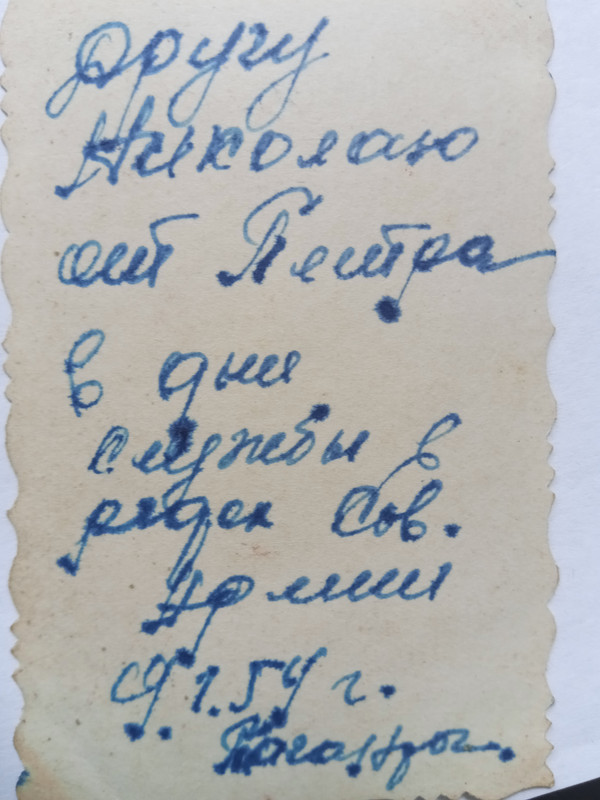 Другу
Николаю
от Петра
в дни
службы в
рядах Сов.
Армии
9.1.54 г.
Таганрог.